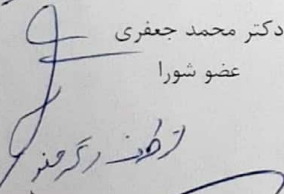 دکتر محمد جعفری
عضو شورا
از طرف